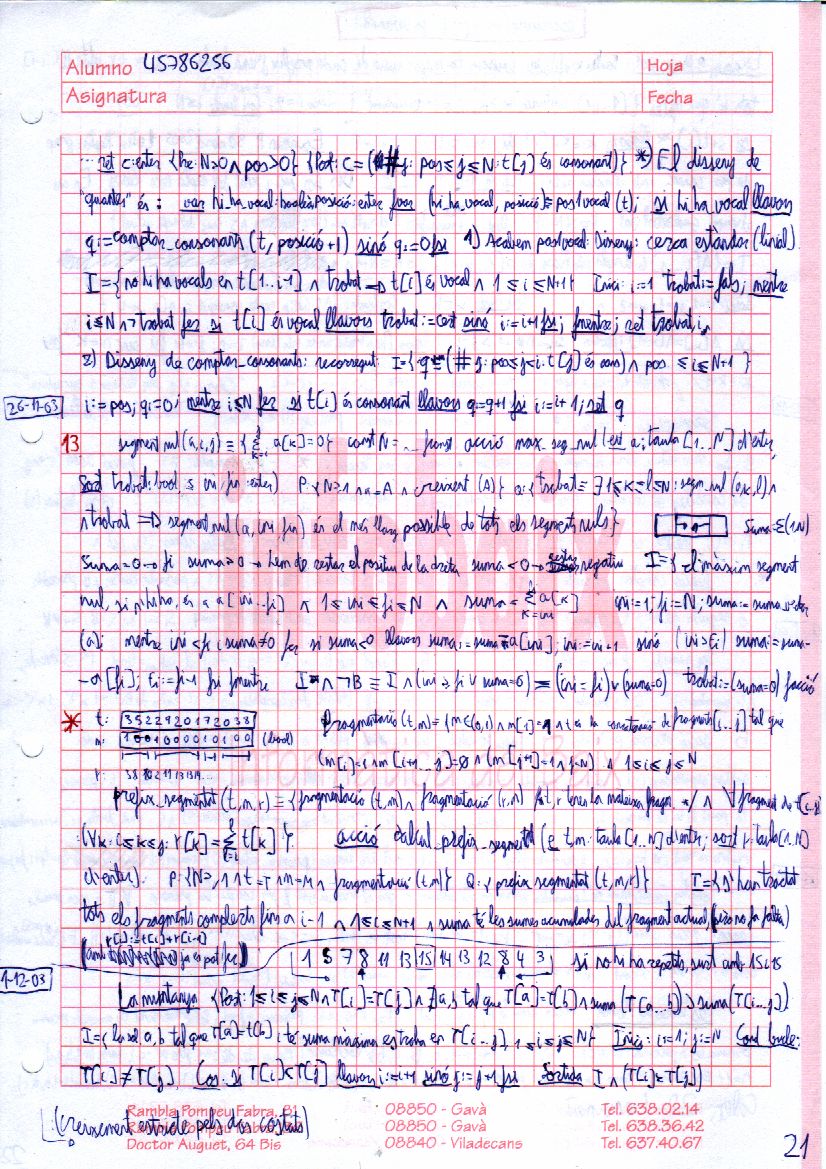 Alumno 45786256 Hoja
Asignatura Fecha
... ret c:enter {Pre: N>0 ∧ pos>0} {Post: C = (# j: pos≤j≤N: t[j] és consonant)} *) El disseny de
"quantes" és: var hi_ha_vocal:booleà posició:enter fvar (hi_ha_vocal, posició):= pos1vocal (t); si hi ha vocal llavors
q:=comptar_consonants (t, posició+1) sinó q:=0 fsi 1) Acabem pos1vocal: Disseny: cerca estàndar (linial).
I={no hi ha vocals en t[1..i-1] ∧ trobat ⇒ t[i] és vocal ∧ 1≤i≤N+1} Inici: i:=1 trobat:=fals; mentre
i≤N ∧ ¬trobat fer si t[i] és vocal llavors trobat:=cert sinó i:=i+1 fsi; fmentre; ret trobat,i
2) Disseny de comptar_consonants: recorregut: I={q=(# j: pos≤j<i. t[j] és cons) ∧ pos ≤i≤N+1 }
26-11-03 i:=pos; q:=0; mentre i≤N fer si t[i] és consonant llavors q:=q+1 fsi i:=i+1; ret q
13 segment nul (a,i,j) ≡ {Σ a[k]=0} const N=... fconst acció max_seg_nul (ent a:taula [1..N] d'enter,
sort trobat:bool ini, fin:enter) P:{N≥1 ∧ a=A ∧ creixent (A)} Q:{trobat ≡ ∃ 1≤k≤l≤N: segm_nul (a,k,l) ∧
∧ trobat ⇒ segment nul (a, ini, fin) és el més llarg possible de tots els segments nuls} Suma=Σ(1..N)
Suma=0 → fi suma>0 → hem de restar el positiu de la dreta suma<0 → restar negatiu I={el màxim segment
nul, si n'hi ha, és a a[ini..fi] ∧ 1≤ini≤fi≤N ∧ suma = Σ a[k] ini:=1; fi:=N; suma:= suma
(a); mentre ini<fi i suma≠0 fer si suma<0 llavors suma:=suma-a[ini]; ini:=ini+1 sinó suma:=suma-
-a[fi]; fi:=fi-1 fsi fmentre I ∧ ¬B ≡ I ∧ (ini≥fi ∨ suma=0) ≡ (ini=fi) ∨ (suma=0) trobat:=(suma=0) facció
* t: 3522920172038 Fragmentació (t,m)≡{m∈(0,1) ∧ m[1]=1 ∧ t és la concatenació de fragments[i..j] tal que
m: 1001000010100
(m[i]=1 ∧ m[i+1..j]=0 ∧ (m[j+1]=1 ∨ j=N) ∧ 1≤i≤j≤N
prefix_segmentat (t,m,r) ≡ {fragmentació (t,m) ∧ fragmentació (r,m) /* t, r tenen la mateixa fragm. */ ∧ ∀ fragment de t[i..j]
:(∀k: i≤k≤j: r[k]=Σ t[k]} acció càlcul_prefix_segmentat (e t,m: taula [1..N] d'enter; sort r:taula [1..N]
d'enter). P:{N≥1 ∧ t=T ∧ m=M ∧ fragmentació (t,m)} Q:{prefix segmentat (t,m,r)} I={S'han tractat
tots els fragments complerts fins a i-1 ∧ 1≤i≤N+1 ∧ suma té les sumes acumulades del fragment actual (però no fa falta)
r[i]:=t[i]+r[i-1]
(amb ja es pot fer) 1 5 7 8 11 13 15 14 13 12 8 4 3 si no hi ha repetits, surt amb 15 i 15
1-12-03
La muntanya {Post: 1≤i≤j≤N ∧ T[i]=T[j] ∧ ∄ a,b tal que T[a]=T[b] ∧ suma (T[a..b]) > suma (T[i..j])
I={la sol a,b tal que T[a]=T[b] i té suma màxima es troba en T[i..j], 1≤i≤j≤N} Inici: i:=1; j:=N Cond bucle:
T[i]≠T[j] Cos: si T[i]<T[j] llavors i:=i+1 sinó j:=j+1 fsi Sortida I ∧ (T[i]=T[j])
(creixement estricte pels dos costats)
Rambla Pompeu Fabra, 81 08850 - Gavà Tel. 638.02.14
08850 - Gavà Tel. 638.36.42
Doctor Auguet, 64 Bis 08840 - Viladecans Tel. 637.40.67
21